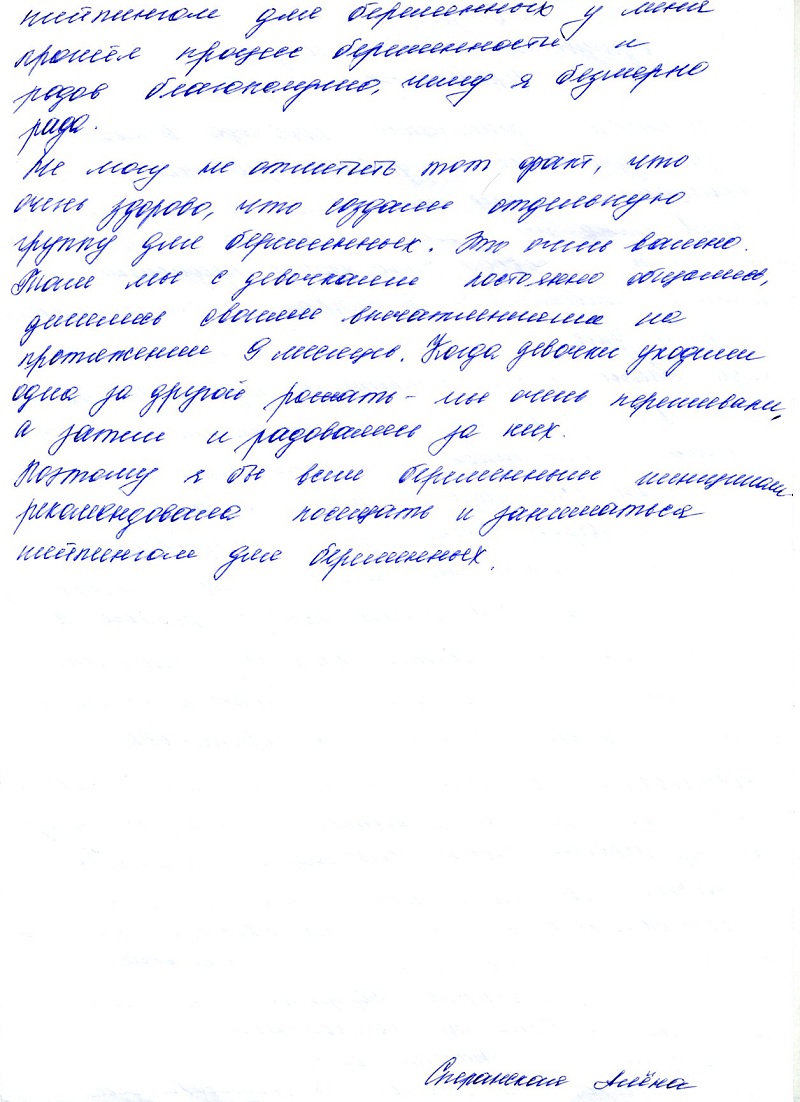 шейпингом для беременных у меня
прошёл процесс беременности и
родов благополучно, чему я безмерно
рада.
Не могу не отметить тот факт, что
очень здорово, что создали отдельную
группу для беременных. Это очень важно.
Там мы с девочками постоянно общались,
делились своими впечатлениями на
протяжении 9 месяцев. Когда девочки уходили
одна за другой рожать - мы очень переживали,
а затем и радовались за них.
Поэтому я бы всем беременным женщинам
рекомендовала посещать и заниматься
шейпингом для беременных.
Сперанская Алёна